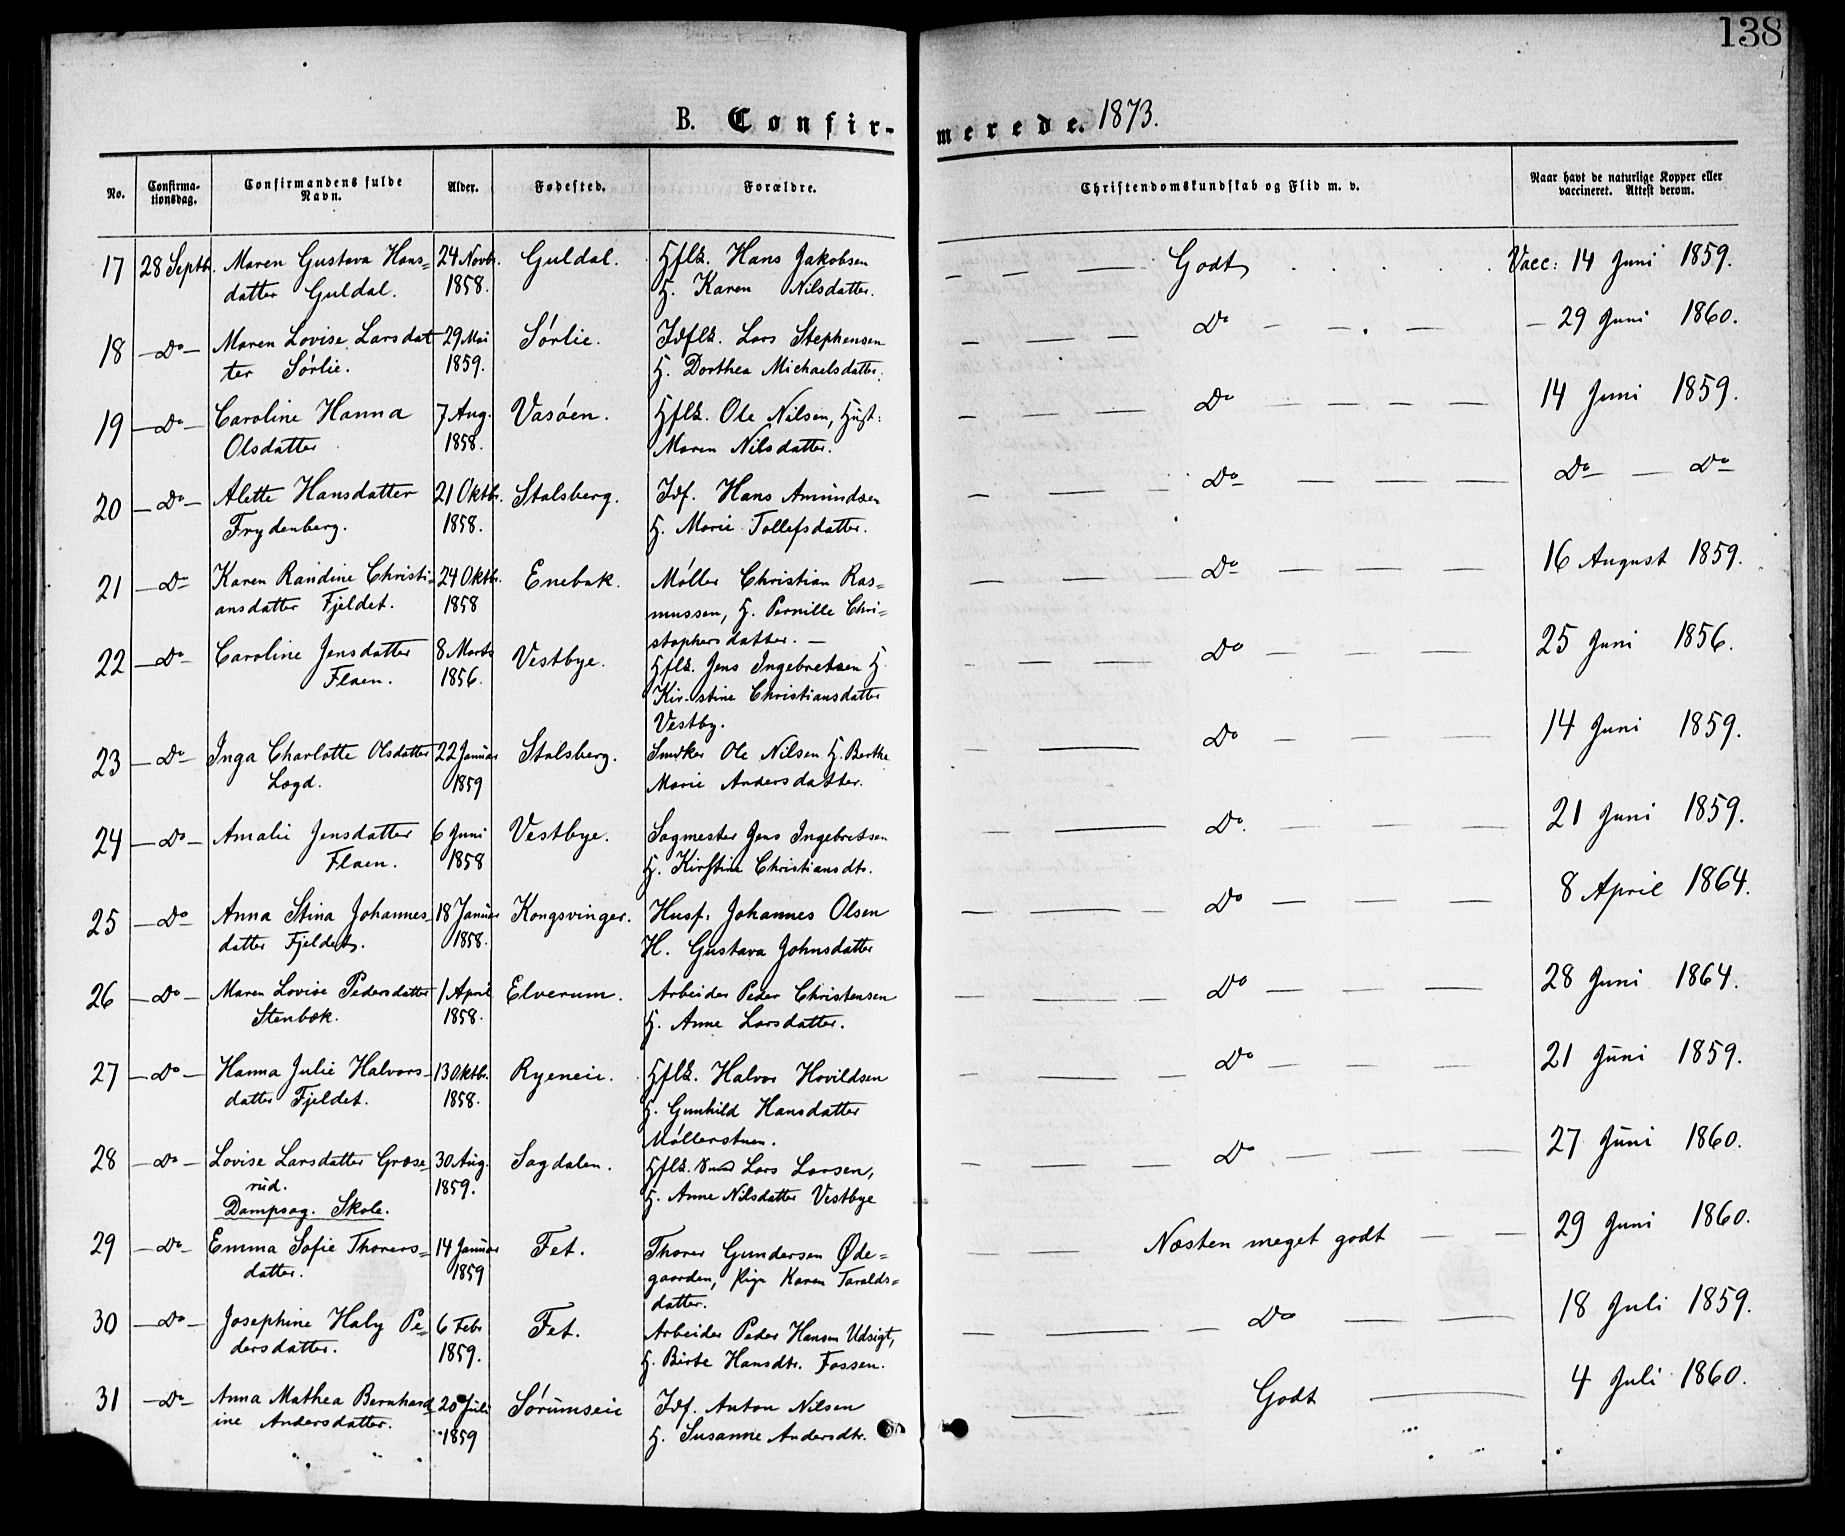 138
B. Confir- merede. 1873.
No. Confirma- tionsdag. Confirmandens fulde Navn. Alder. Fødested. Forældre. Christendomskundskab og Flid m. v. Naar havt de naturlige Kopper eller vaccineret. Attest derom.
17 28 Septb. Maren Gustava Hans= 24 Novbr. Guldal. Hflk. Hans Jakobsen — — — Godt . . . . . Vacc: 14 Juni 1859.
datter Guldal. 1858. H. Karen Nilsdatter.
18 — Do — Maren Lovise Larsdat 29 Mai Sørlie. Idflk. Lars Stephensen — — — Do — — . — — 29 Juni 1860.
ter Sørlie. 1859. H. Dorthea Michaelsdatter.
19 — Do — Caroline Hanna 7 Aug. Vasøen. Hflk. Ole Nilsen, Hust: — — — Do — — — — 14 Juni 1859.
Olsdatter 1858. Maren Nilsdatter.
20 — Do — Alette Hansdatter 21 Oktb. Stalsberg. Idf. Hans Amundsen — — — Do — — — Do — Do
Frydenberg. 1858. H. Marie Tollefsdatter.
21 — Do Karen Randine Christi= 24 Oktb. Enebak. Møller Christian Ras= — — — Do — — — 16 August 1859.
ansdatter Fjeldet. 1858 mussen, H. Pernille Chri=
stophersdatter. —
22 — Do — Caroline Jensdatter 8 Marts Vestbye. Hflk. Jens Ingebretsen H. — — — Do — — — 25 Juni 1856.
Flaen. 1856. Kirstine Christiansdatter
Vestby.
23 — Do — Inga Charlotte Olsdatter 22 Januar Stalsberg. Snedker Ole Nilsen H. Berthe — — Do — — — 14 Juni 1859.
Løgd. 1859 Marie Andersdatter.
24 — Do — Amalie Jensdatter 6 Juni Vestbye. Sagmester Jens Ingebretsen — — Do. — — — 21 Juni 1859.
Flaen. 1858 H. Kirstine Christiansdtr.
25 — Do — Anna Stina Johannes- 18 Januar Kongsvinger. Husf. Johannes Olsen — — — Do — — — 8 April 1864.
datter Fjeldet. 1858. H. Gustava Johnsdatter
26 — Do — Maren Lovise Pedersdatter 1 April Elverum. Arbeider Peder Christensen — — — Do — — — 28 Juni 1864.
Stenbæk. 1858. H. Anne Larsdatter.
27 — Do — Hanna Julie Halvors- 13 Oktb. Ryeneie. Hflk. Halvor Hovildsen — — — Do — — — 21 Juni 1859.
datter Fjeldet. 1858. H. Gunhild Hansdatter
Møllerstuen.
28 — Do — Lovise Larsdatter Græse= 30 Aug. Sagdalen. Hflk. Lars Larsen, — — — Do — — — 27 Juni 1860.
rud. 1859. H. Anne Nilsdatter Vestbye
Dampsag. Skole.
29 — Do — Emma Sofie Thorers= 14 Januar Fet. Thorer Gundersen Øde= — — Næsten meget godt — — 29 Juni 1860.
datter. 1859 gaarden, Pige Karen Taralds=
datter.
30 — Do — Josephine Haly Pe= 6 Febr Fet. Arbeider Peder Hansen Udsigt, — — — Do — — 18 Juli 1859.
dersdatter. 1859. H. Birte Hansdtr. Fossen.
31 — Do — Anna Mathea Bernhard 20 Juli Sørumseie Idf. Anton Nilsen — — Godt — 4 Juli 1860.
ine Andersdatter. 1859 H. Susanne Andersdtr.